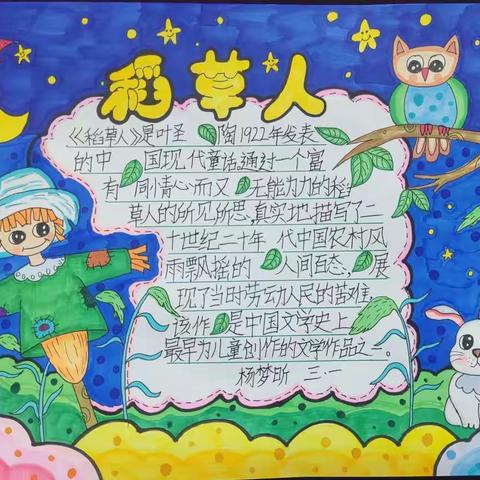 稻草人
《稻草人》是叶圣陶1922年发表
的中国现代童话,通过一个富
有同情心而又无能为力的稻
草人的所见所思,真实地描写了二
十世纪二十年代中国农村风
雨飘摇的人间百态,展
现了当时劳动人民的苦难,
该作是中国文学史上
最早为儿童创作的文学作品之一。
杨梦昕 三.一